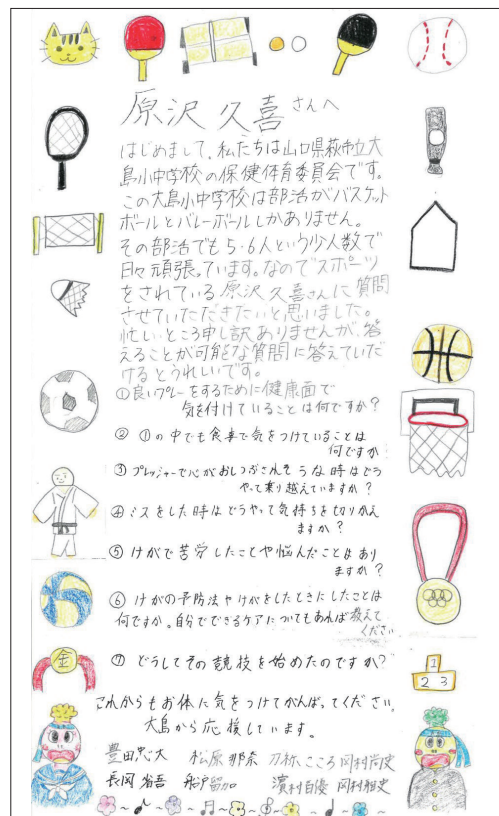 原沢 久喜さんへ
はじめまして。私たちは山口県萩市立大
島小中学校の保健体育委員会です。
この大島小中学校は部活がバスケット
ボールとバレーボールしかありません。
その部活でも5・6人という少人数で
日々頑張っています。なのでスポーツ
をされている原沢久喜さんに質問
させていただきたいと思いました。
忙しいところ申し訳ありませんが、答
えることが可能な質問に答えていただ
けるとうれしいです。
①良いプレーをするために健康面で
気を付けていることは何ですか?
② ①の中でも食事で気をつけていることは
何ですか
③ プレッシャーで心がおしつぶされそうな時はどう
やって乗り越えていますか?
④ ミスをした時はどうやって気持ちを切りかえ
ますか?
⑤ けがで苦労したことや悩んだことはあり
ますか?
⑥ けがの予防法やけがをしたときにしたことは
何ですか。自分でできるケアについてもあれば教えて
ください
金
⑦ どうしてその競技を始めたのですか?
1
2 3
これからもお体に気をつけてがんばってください。
大島から応援しています。
豊田忠大 松原那奈 刀祢こころ 岡村
長岡省吾 船戸留加 濵村自優 岡村雅史